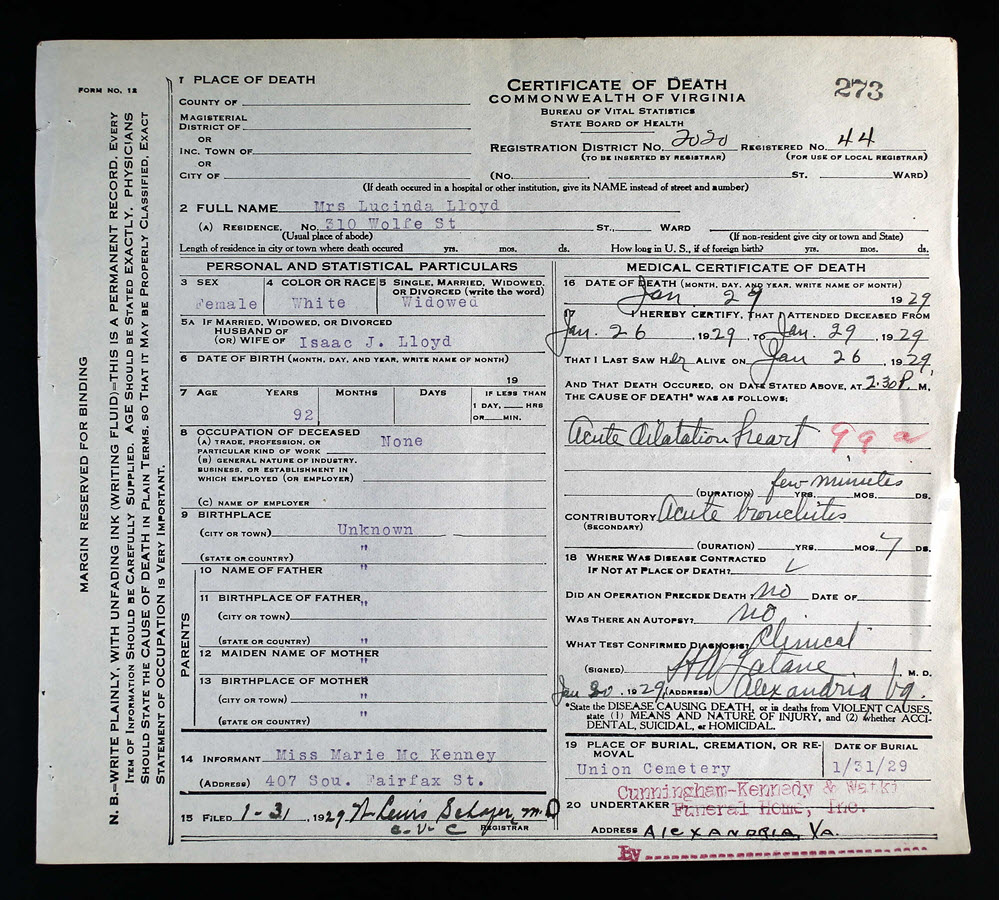 FORM NO. 12
MARGIN RESERVED FOR BINDING
N. B.—WRITE PLAINLY, WITH UNFADING INK (WRITING FLUID)—THIS IS A PERMANENT RECORD. EVERY
ITEM OF INFORMATION SHOULD BE CAREFULLY SUPPLIED. AGE SHOULD BE STATED EXACTLY. PHYSICIANS
SHOULD STATE THE CAUSE OF DEATH IN PLAIN TERMS, SO THAT IT MAY BE PROPERLY CLASSIFIED. EXACT
STATEMENT OF OCCUPATION IS VERY IMPORTANT.
1 PLACE OF DEATH
COUNTY OF
MAGISTERIAL
DISTRICT OF
OR
INC. TOWN OF
OR
CITY OF
CERTIFICATE OF DEATH
COMMONWEALTH OF VIRGINIA
BUREAU OF VITAL STATISTICS
STATE BOARD OF HEALTH
273
REGISTRATION DISTRICT NO. 2020 REGISTERED NO. 44
(TO BE INSERTED BY REGISTRAR) (FOR USE OF LOCAL REGISTRAR)
(NO. ST. WARD)
(If death occured in a hospital or other institution, give its NAME instead of street and number)
2 FULL NAME Mrs Lucinda Lloyd
(A) RESIDENCE. NO. 310 Wolfe St ST., WARD
(Usual place of abode) (If non-resident give city or town and State)
Length of residence in city or town where death occured yrs. mos. ds. How long in U. S., if of foreign birth? yrs. mos. ds.
PERSONAL AND STATISTICAL PARTICULARS
3 SEX 4 COLOR OR RACE 5 SINGLE, MARRIED, WIDOWED,
OR DIVORCED (write the word)
Female White Widowed
5A IF MARRIED, WIDOWED, OR DIVORCED
HUSBAND OF
(OR) WIFE OF Isaac J. Lloyd
6 DATE OF BIRTH (MONTH, DAY, AND YEAR, WRITE NAME OF MONTH)
19
7 AGE YEARS MONTHS DAYS IF LESS THAN
1 DAY, HRS
OR MIN.
92
8 OCCUPATION OF DECEASED
(A) TRADE, PROFESSION, OR
PARTICULAR KIND OF WORK
None
(B) GENERAL NATURE OF INDUSTRY,
BUSINESS, OR ESTABLISHMENT IN
WHICH EMPLOYED (OR EMPLOYER)
(C) NAME OF EMPLOYER
9 BIRTHPLACE
(CITY OR TOWN) Unknown
(STATE OR COUNTRY) "
PARENTS
10 NAME OF FATHER "
11 BIRTHPLACE OF FATHER "
(CITY OR TOWN)
(STATE OR COUNTRY) "
12 MAIDEN NAME OF MOTHER "
13 BIRTHPLACE OF MOTHER "
(CITY OR TOWN) "
(STATE OR COUNTRY) "
14 INFORMANT Miss Marie Mc Kenney
(ADDRESS) 407 Sou. Fairfax St.
15 FILED 1-31, 1929 Lewis M.D
REGISTRAR
MEDICAL CERTIFICATE OF DEATH
16 DATE OF DEATH (MONTH, DAY, AND YEAR, WRITE NAME OF MONTH)
Jan. 29 1929
I HEREBY CERTIFY, THAT I ATTENDED DECEASED FROM
Jan. 26, 1929, TO Jan. 29, 1929
THAT I LAST SAW Her ALIVE ON Jan 26, 1929,
AND THAT DEATH OCCURED, ON DATE STATED ABOVE, AT 2.30 P. M.
THE CAUSE OF DEATH* WAS AS FOLLOWS:
Acute dilatation heart 99a
few minutes
(DURATION) YRS. MOS. DS.
CONTRIBUTORY Acute bronchitis
(SECONDARY)
(DURATION) YRS. MOS. 7 DS.
18 WHERE WAS DISEASE CONTRACTED
IF NOT AT PLACE OF DEATH?
DID AN OPERATION PRECEDE DEATH? no DATE OF
WAS THERE AN AUTOPSY? no
WHAT TEST CONFIRMED DIAGNOSIS? Clinical
(SIGNED) Latane, M. D.
Jan 30, 1929 (ADDRESS) Alexandria Va.
*State the DISEASE CAUSING DEATH, or in deaths from VIOLENT CAUSES,
state (1) MEANS AND NATURE OF INJURY, and (2) whether ACCI-
DENTAL, SUICIDAL, or HOMICIDAL.
19 PLACE OF BURIAL, CREMATION, OR RE- DATE OF BURIAL
MOVAL
Union Cemetery 1/31/29
Cunningham-Kennedy &
20 UNDERTAKER Funeral Home, Inc.
ADDRESS ALEXANDRIA, VA.
By